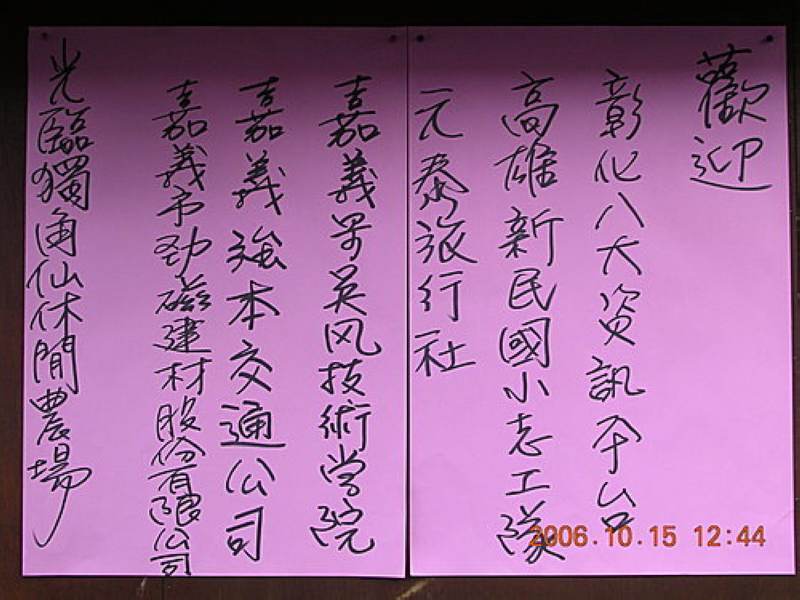 歡迎
彰化八大資訊平台
高雄新民國小志工隊
元泰旅行社
嘉義吳鳳技術学院
嘉義強本交通公司
嘉義予劲磁建材股份有限公司
光臨獨角仙休閒農場
2006.10.15 12:44